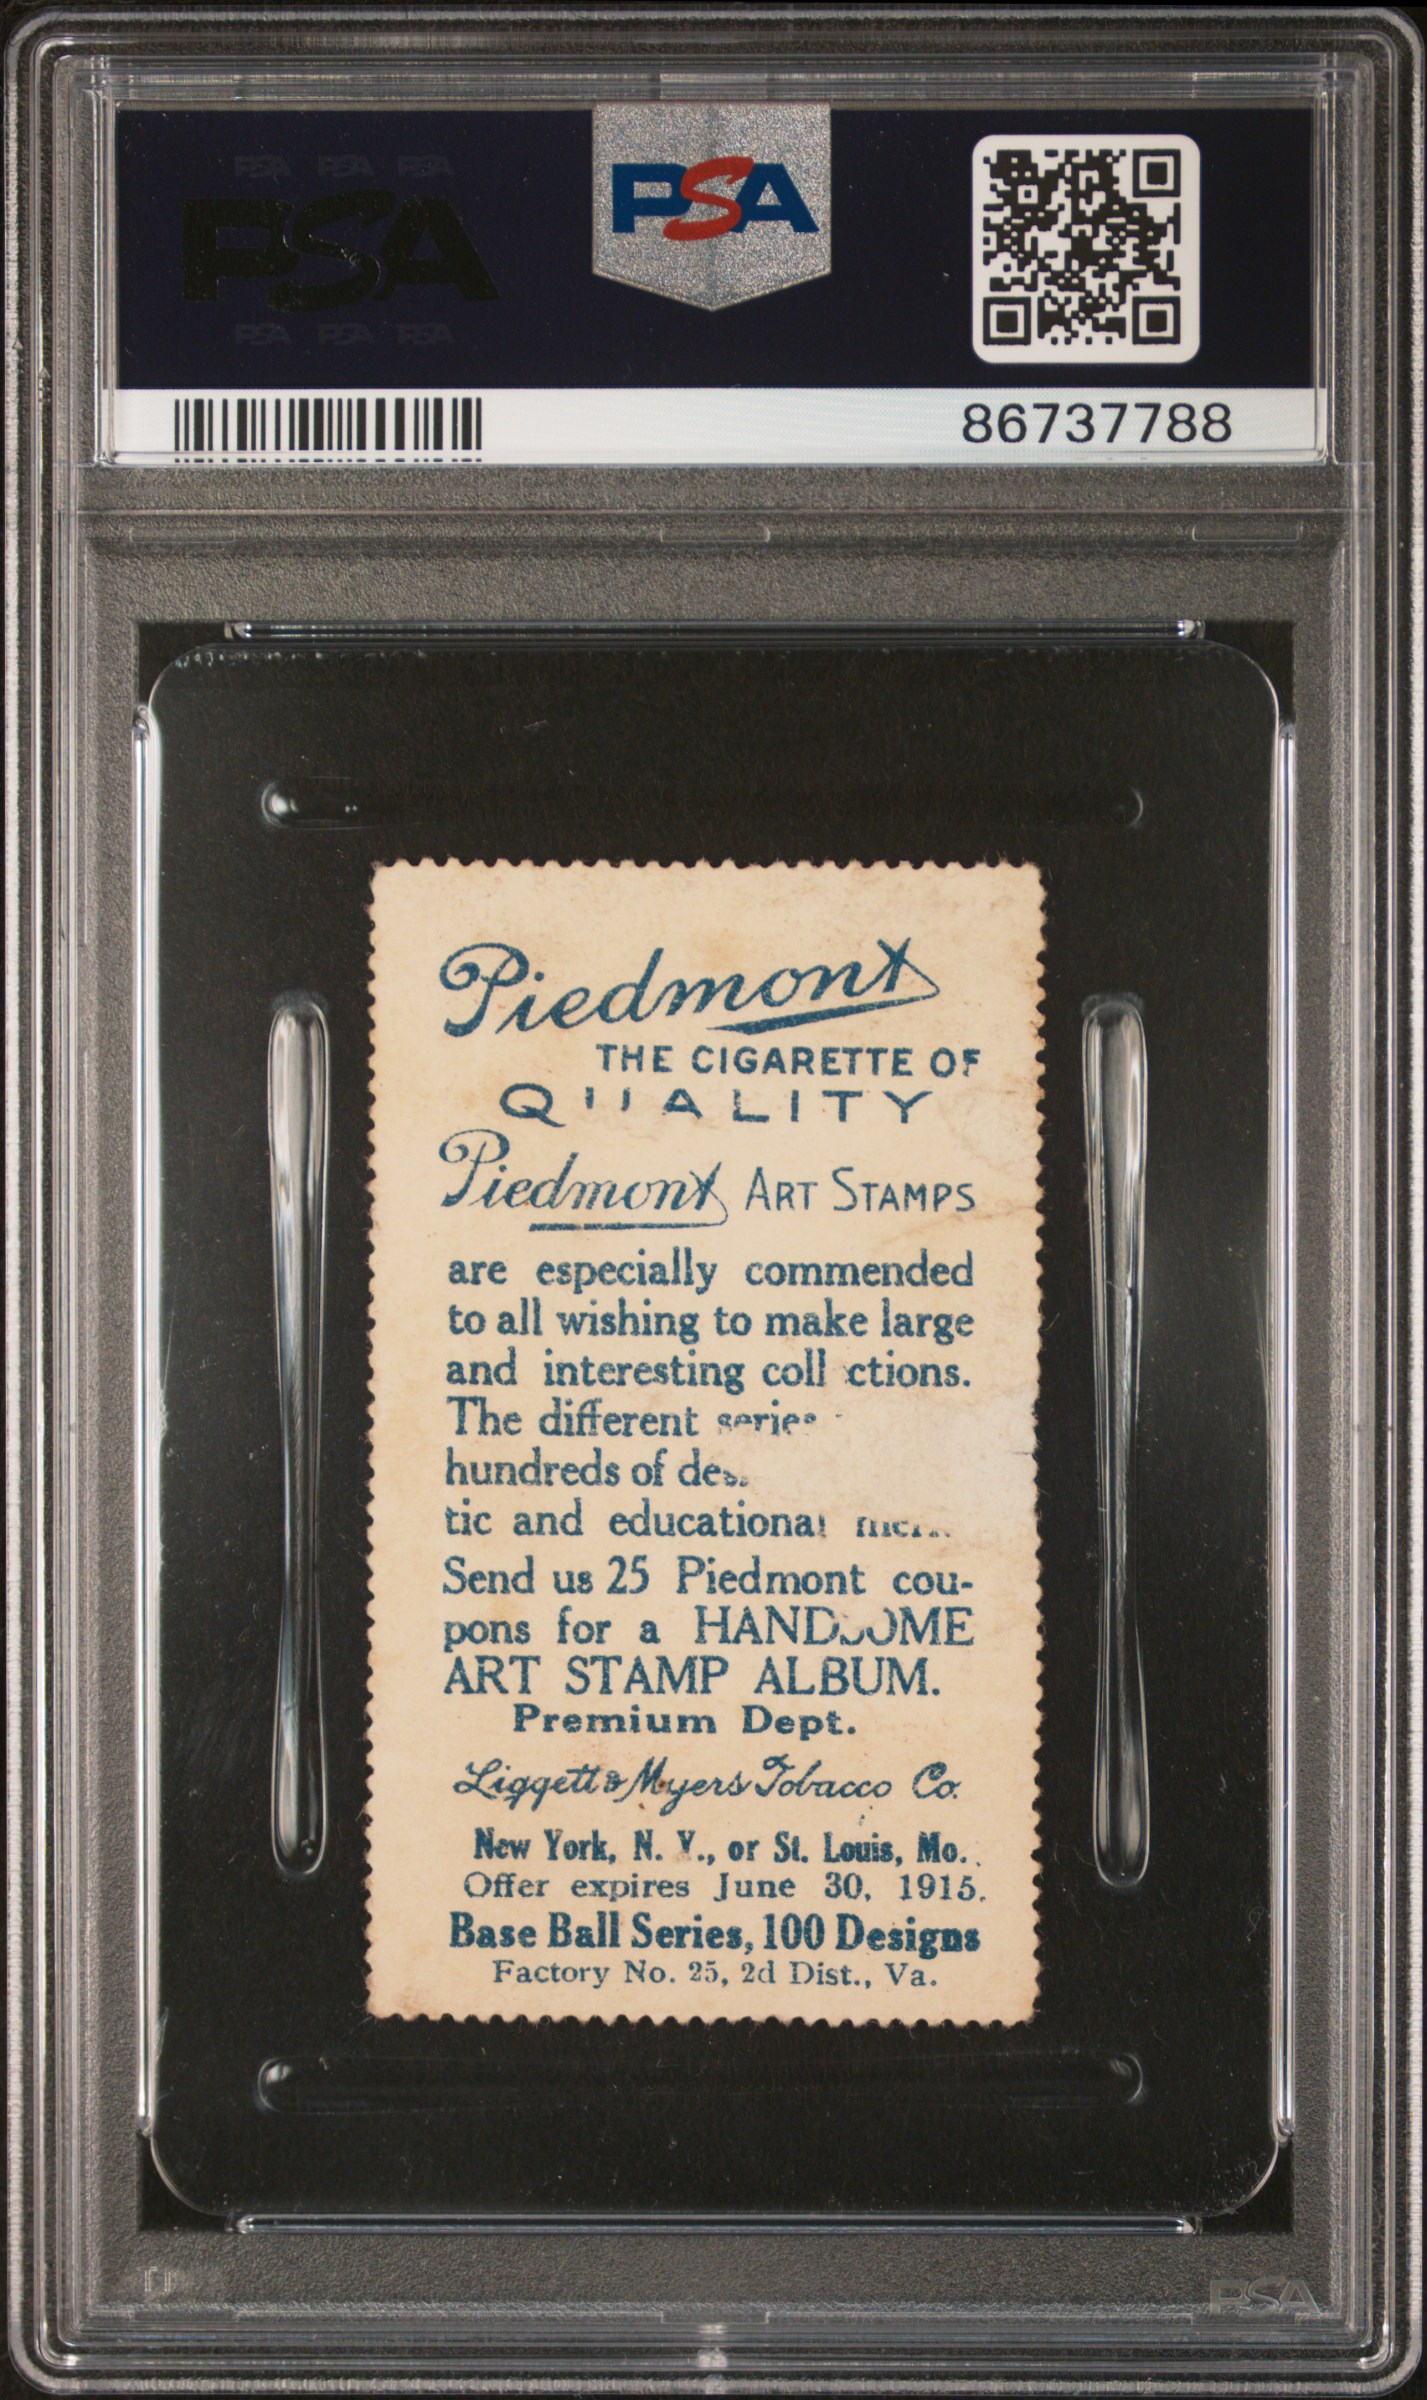 PSA PSA PSA
PSA
PSA PSA PSA
PSA
86737788
Piedmont
THE CIGARETTE OF
QUALITY
Piedmont ART STAMPS
are especially commended
to all wishing to make large
and interesting coll ctions.
The different series
hundreds of
tic and educational
Send us 25 Piedmont cou-
pons for a HANDSOME
ART STAMP ALBUM.
Premium Dept.
Liggett & Myers Tobacco Co.
New York, N. Y., or St. Louis, Mo.
Offer expires June 30, 1915.
Base Ball Series, 100 Designs
Factory No. 25, 2d Dist., Va.
PSA